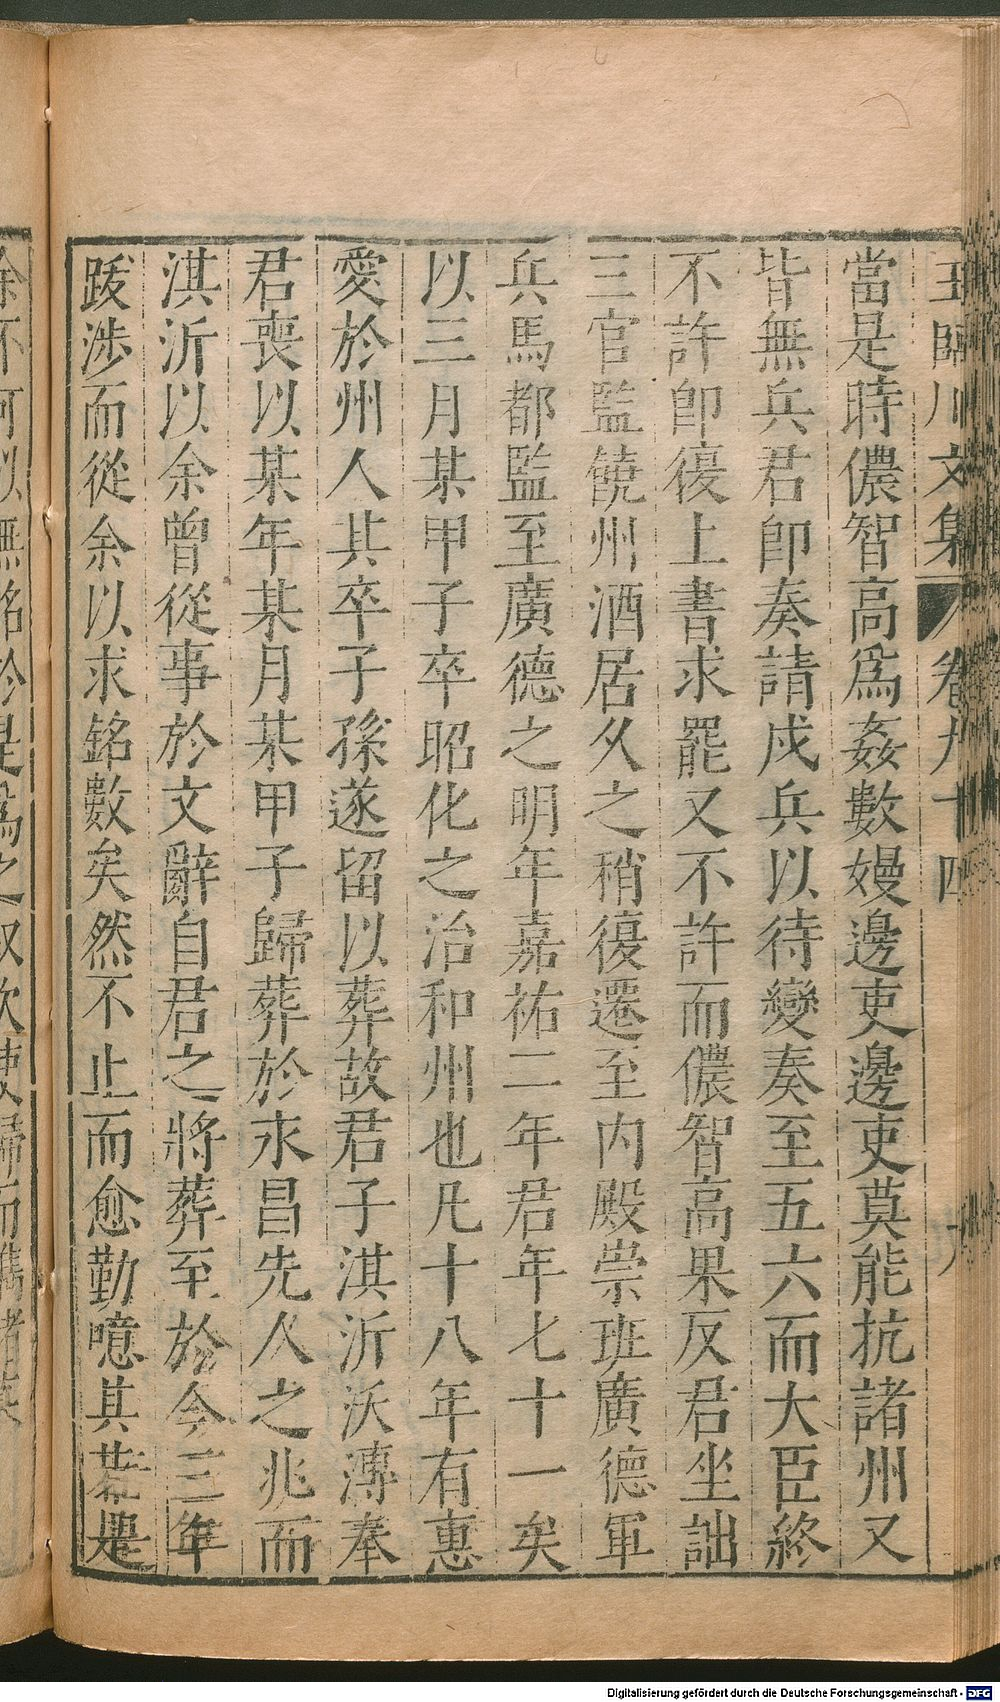 王臨川文集 卷九十四
當是時儂智高爲姦數嫚邊吏邊吏莫能抗諸州又
皆無兵君卽奏請戍兵以待變奏至五六而大臣終
不許卽復上書求罷又不許而儂智高果反君坐詘
三官監饒州酒居久之稍復遷至内殿崇班廣德軍
兵馬都監至廣德之明年嘉祐二年君年七十一矣
以三月某甲子卒昭化之治和州也凡十八年有惠
愛於州人其卒子孫遂留以葬故君子淇沂沃漙奉
君喪以某年某月某甲子歸葬於永昌先人之兆而
淇沂以余曾從事於文辭自君之將葬至於今三年
跋涉而從余以求銘數矣然不止而愈勤噫其若是
余不可以無銘於是爲之叙次使歸而
Digitalisierung gefördert durch die Deutsche Forschungsgemeinschaft - DFG